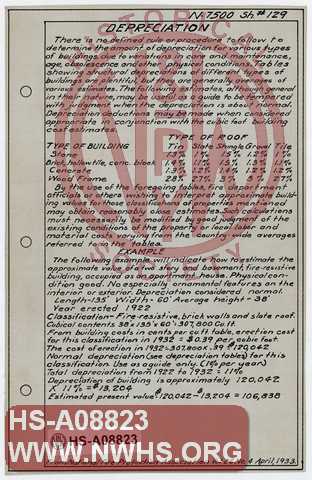 N-7500 Sh.# 129
DEPRECIATION
There is no defined rule or procedure to follow to
determine the amount of depreciation for various types
of buildings because of variation in care and maintenance,
age, obsolescence and other physical conditions. Tables
showing natural depreciation of different types of
buildings are plentiful, but are generally averages of
various estimates. The following rates, although general
in their nature, may be used as a guide to be tempered
with judgment where depreciation is above normal.
Depreciation deductions may be made when considered
appropriate in conjunction with the cubic foot building
cost estimates.
TYPE OF ROOF
TYPE OF BUILDING Tin Slate Shingle Gravel Tile
Stone
Brick, hollow tile, conc. block
Concrete
Wood Frame
By the use of the foregoing tables, fire department
officials or others wishing to interpret approximate build-
ing values in those classes of properties outlined
may obtain reasonably close estimates. Such calculations
must necessarily be modified by good judgment as the
existing conditions of the property or local labor and
material costs vary from the country-wide averages
referred to in the tables.
EXAMPLE
The following example will indicate how to estimate the
approximate value of six story and basement, fire-resistive
building, occupied as apartment house. Physical con-
dition good. No especially ornamental features on the
interior or exterior. Depreciation considered normal.
Length-135' Width-60' Average height-38'
Year erected 1922
Classification-Fire-resistive, brick walls and slate roof.
Cubical contents 38 x 135' x 60' = 307,800 Cu. ft.
From building costs in cents per cu. ft. table, erection cost
for this classification in 1932 = $0.39 per cubic foot.
The cost of erection in 1932=307,800 x .39 $120,042
Normal depreciation (see depreciation tables) for this
classification. Use as guide only. (1.1% per year)
Total depreciation from 1922 to 1932 = 11%
Depreciation of building is approximately 120,042
x 11% = $13,204
Estimated present value $120,042-$13,204 = 106,838
HS-A08823
HS-A08823
WWW.NWHS.ORG
4 April, 1933.